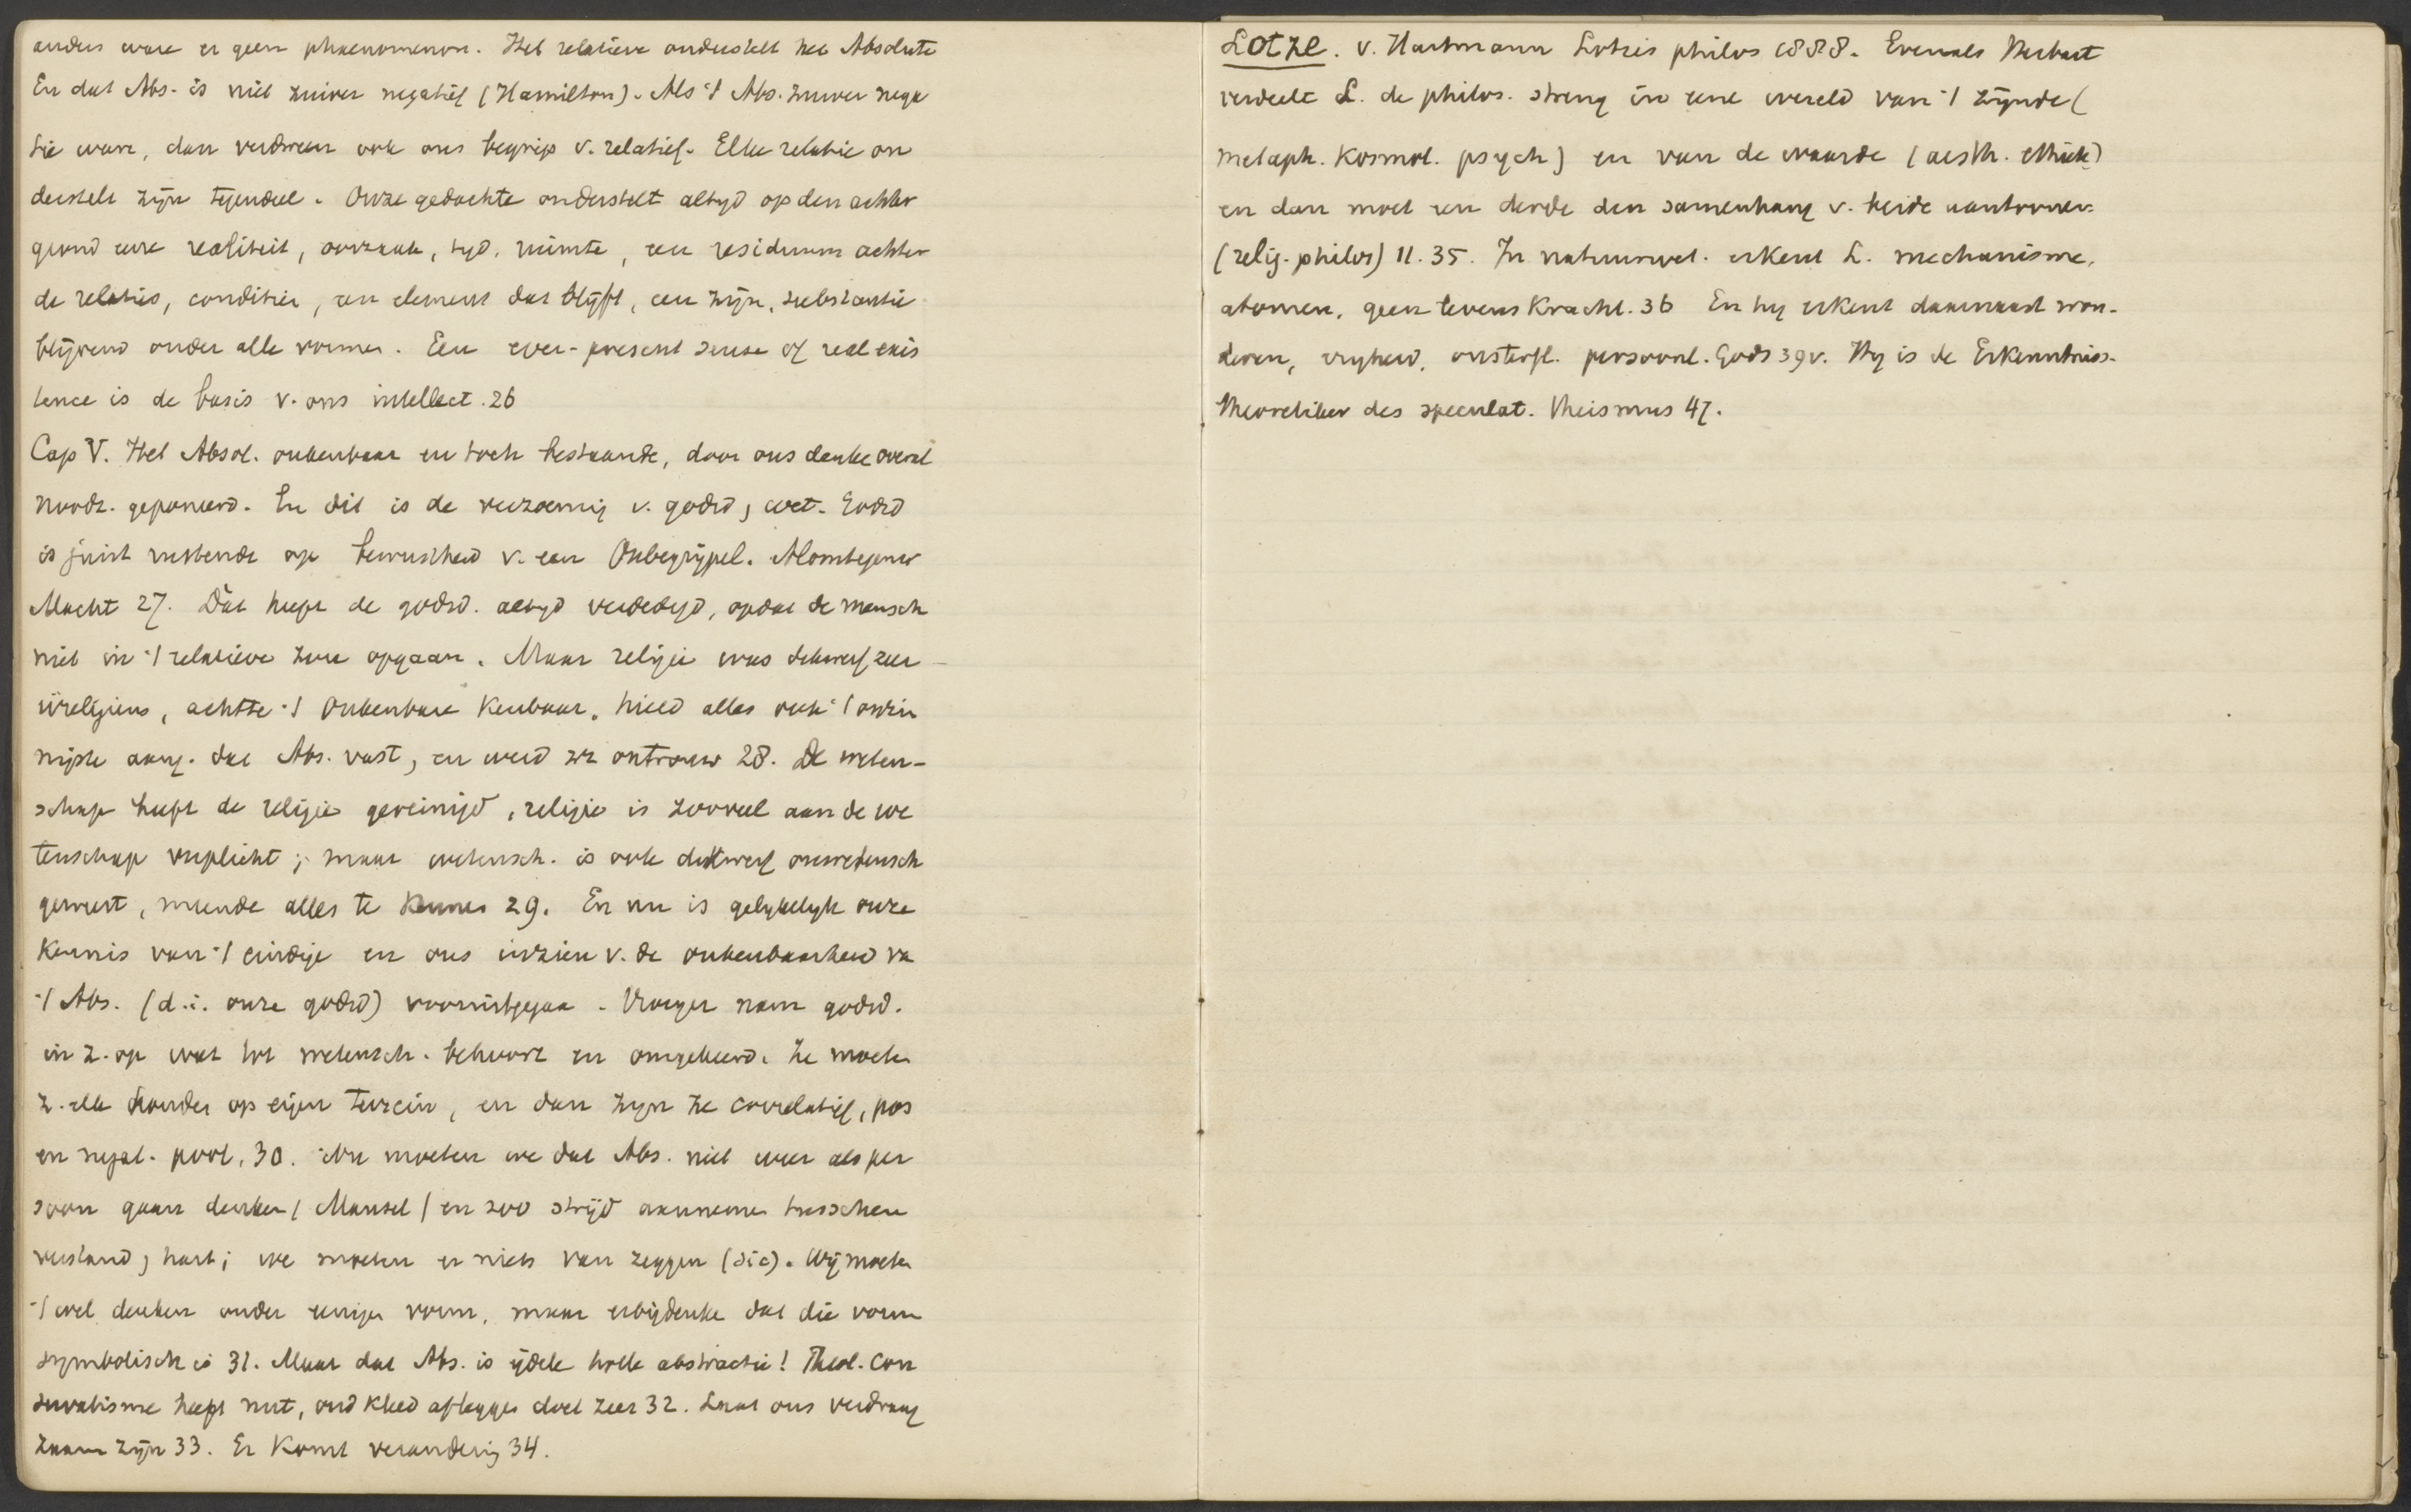 anders ware er geen phaenomenon. Het relatieve onderstelt het Absolute
En dat Abs. is niet zuiver negatief (Hamilton). Als 't Abs. zuiver nega
tie ware, dan verdween ook ons begrip v. relatief. Elke relatie on
derstelt zijn tegendeel. Onze gedachte onderstelt altyd op den achter
grond eene realiteit, oorzaak, tyd, ruimte, een residuum achter
de relaties, condities, een element dat blijft, een zijn, substantie
blijvend onder alle vormen. Een ever-present sense of real exis
tence is de basis v. ons intellect. 26
Cap V. Het Absol. onkenbaar en toch bestaande, door ons denke overal
noodz. geponeerd. En dit is de verzoening v. godsd, wet. Godsd
is juist rustende op bewustheid v. een Onbegrijpel. Alomtegenw
Macht 27. Dàt heeft de godsd. altyd verdedigd, opdat de mensch
niet in 't relatieve zou opgaan. Maar religie was dikwerf zeer
irreligieus, achtte 't onkenbare kenbaar, hield alles ook 't onzin
nigste aang. dat Abs. vast, en werd zz ontrouw 28. De weten-
schap heeft de religie gereinigd, religie is zooveel aan de we
tenschap verplicht; maar wetensch. is ook dikwerf onwetensch
geweest, meende alles te kennen 29. En nu is gelykelyk onze
kennis van 't eindige en ons inzien v. de onkenbaarheid va
't Abs. (d.i. onze godsd) vooruitgegaa. Vroeger nam godsd.
in z. op wat tot wetensch. behoort en omgekeerd. Ze moeten
z. elk houden op eigen terrein, en dan zyn ze correlatief, pos
en negat. pool, 30. Nu moeten we dat Abs. niet weer als per
soon gaan denken (Mansel) en zoo strijd aannemen tusschen
verstand, hart; we moeten er niets van zeggen (sic). Wij moeten
't wel denken onder eenigen vorm, maar erbijdenke dat die vorm
symbolisch is 31. Maar dat Abs. is ijdele holle abstractie! Theol. con
servatisme heeft nut, oud kleed afleggen doet zeer 32. Laat ons verdraag
zaam zijn 33. Er komt verandering 34.
Lotze. v. Hartmann Lotzes philos 1888. Evenals Herbart
verdeelt L. de philos. streng in eene wereld van 't zijnde (
metaph. kosmol. psych) en van de waarde (aesth. ethiek)
en dan moet een derde den samenhang v. beide aantoonen
(relig. philos) 11. 35. In natuurwet. erkent L. mechanisme,
atomen, geen levenskracht. 36 En hy erkent daarnaast won-
deren, vryheid, onsterfl. persoonl. Gods 39v. Hy is de Erkenntniss-
theoretiker des speculat. Theismus 47.